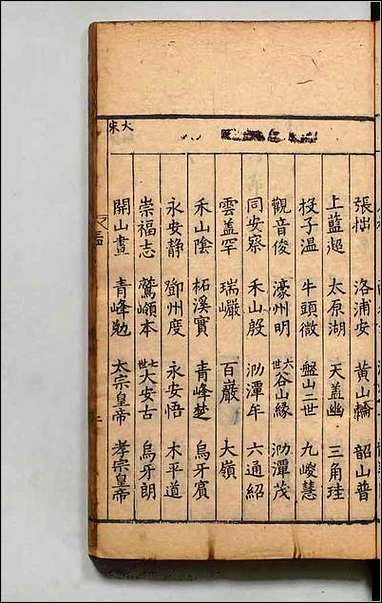 張拙 洛浦安 黄山輪 韶山普
上藍超 太原湖 天蓋幽 三角珪
投子温 牛頭微 盤山二世 九嵕慧
觀音俊 濠州明 六世谷山縁 泐潭茂
同安察 禾山殷 泐潭牟 六通紹
雲盖罕 瑞巖 百巖 大嶺
禾山陰 柘溪實 青峰楚 烏牙賓
永安静 鄧州度 永安悟 木平道
崇福志 鷲嶺本 七世大安古 烏牙朗
大宋
開山晝 青峰勉 太宗皇帝 孝宗皇帝